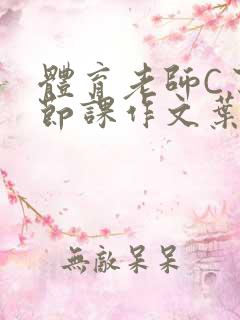 體育老師C
節課作文葉
無敵呆呆